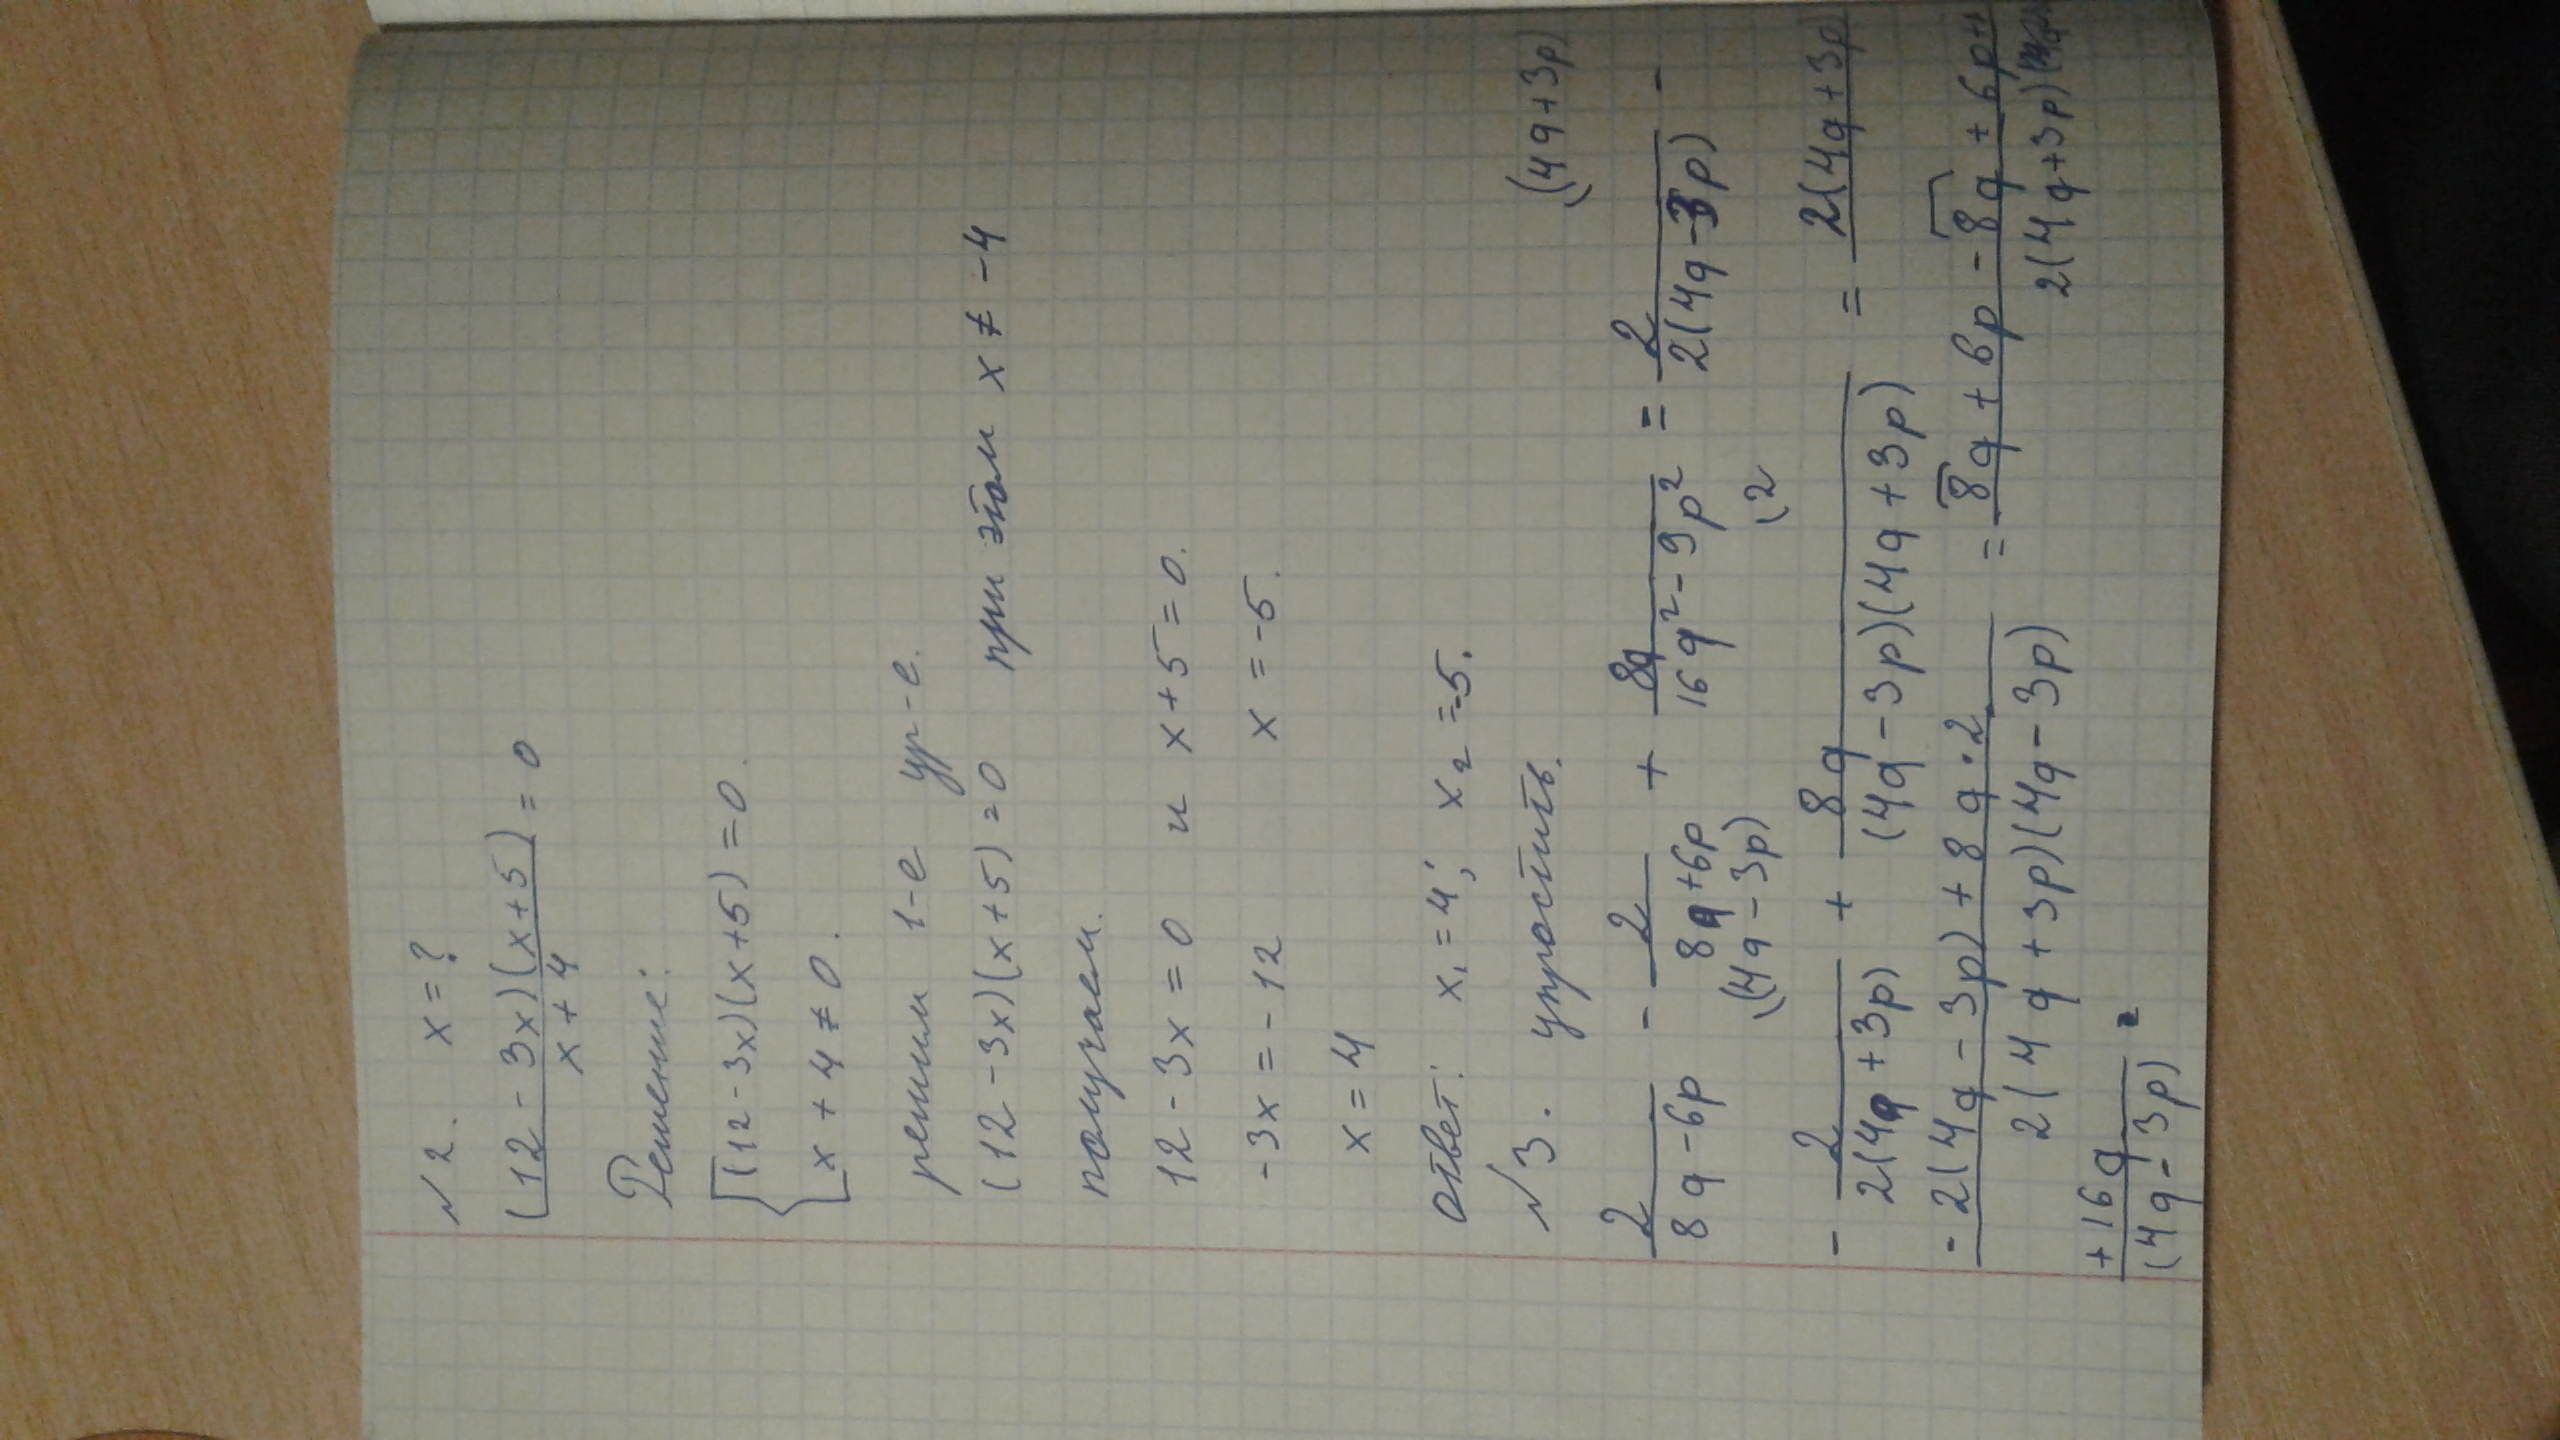 №2. x=?
(12-3x)(x+5)/(x+4) = 0
Решение:
{(12-3x)(x+5)=0.
{x+4≠0.
решим 1-е ур-е.
(12-3x)(x+5)=0 при этом x≠-4
получаем.
12-3x=0 и x+5=0.
-3x=-12 x=-5.
x=4
ответ: x₁=4; x₂=-5.
№3. упростить.
(4q+3p)
2/(8q-6p) - 2/(8q+6p) + 8q/(16q²-9p²) = 2/(2(4q-3p)) -
(4q-3p) (2
- 2/(2(4q+3p)) + 8q/((4q-3p)(4q+3p)) = 2(4q+3p)
-2(4q-3p)+8q·2/(2(4q+3p)(4q-3p)) = 8q+6p-8q+6p+/(2(4q+3p)
+16q/(4q-3p) =